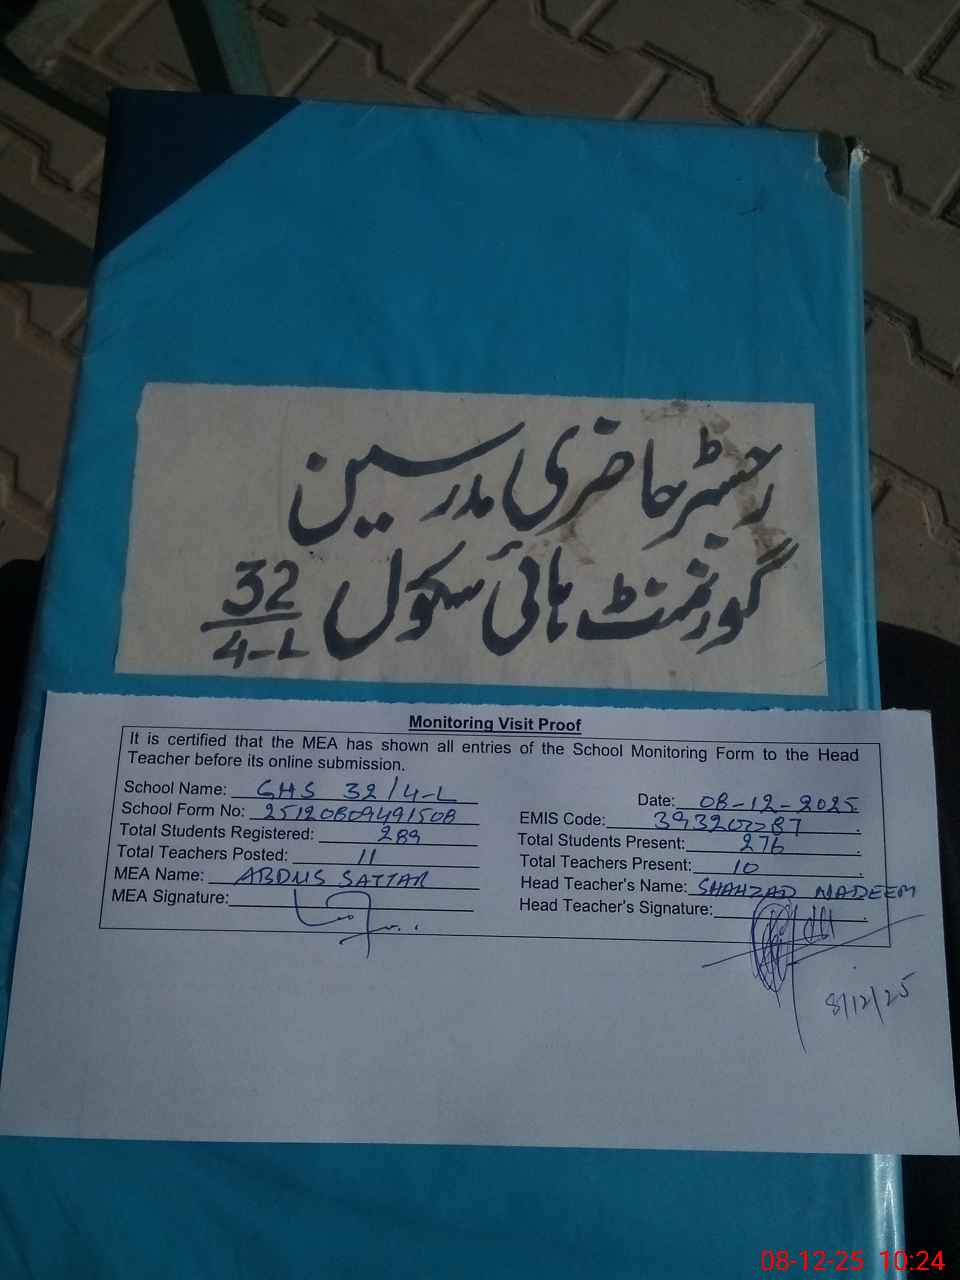 رجسٹر حاضری مدرسین
گورنمنٹ ہائی سکول 32/4-L
Monitoring Visit Proof
It is certified that the MEA has shown all entries of the School Monitoring Form to the Head
Teacher before its online submission.
School Name: GHS 32/4-L
Date: 08-12-2025
School Form No: 25120809491508
EMIS Code: 39320087
Total Students Registered: 289
Total Students Present: 276
Total Teachers Posted: 11
Total Teachers Present: 10
MEA Name: ABDUS SATTAR
Head Teacher's Name: SHAHZAD NADEEM
MEA Signature:
Head Teacher's Signature:
8/12/25
08-12-25 10:24